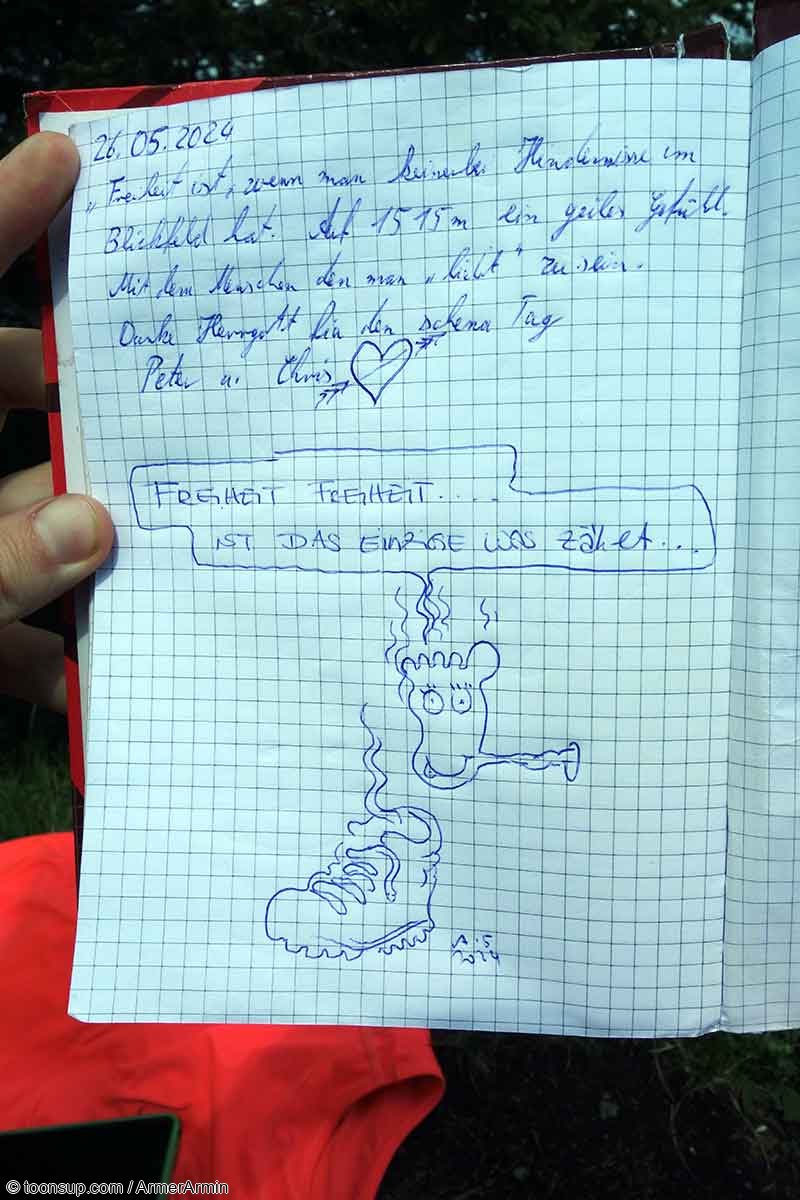 26.05.2024
„Freiheit ist, wenn man keinerlei Hindernisse im
Blickfeld hat. Auf 1515m ein geiles Gefühl.
Mit dem Menschen den man „liebt" zu sein.
Danke Herrgott für den schena Tag
Peter u. Chris
FREIHEIT FREIHEIT.....
IST DAS EINZIGE WAS ZÄHLET...
A.S
2024
© toonsup.com / ArmerArmin